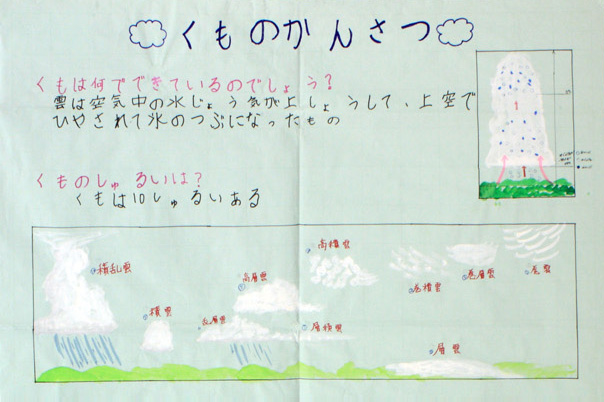 くものかんさつ
くもは何でできているのでしょう?
雲は空気中の水じょう気が上しょうして、上空で
ひやされて氷のつぶになったもの
くものしゅるいは?
くもは10しゅるいある
積乱雲
積雲
乱層雲
高層雲
高積雲
層積雲
巻積雲
巻層雲
巻雲
層雲